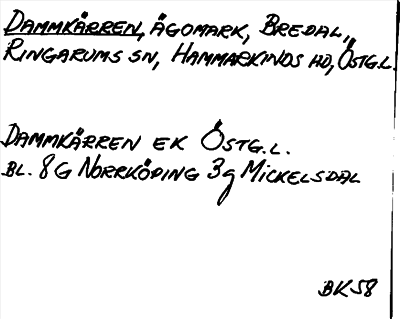 DAMMKÄRREN, ÄGOMARK, BREDAL,
RINGARUMS SN, HAMMARKINDS HD, ÖSTG.L.
DAMMKÄRREN EK ÖSTG.L.
BL. 8G NORRKÖPING 3g MICKELSDAL
BK58